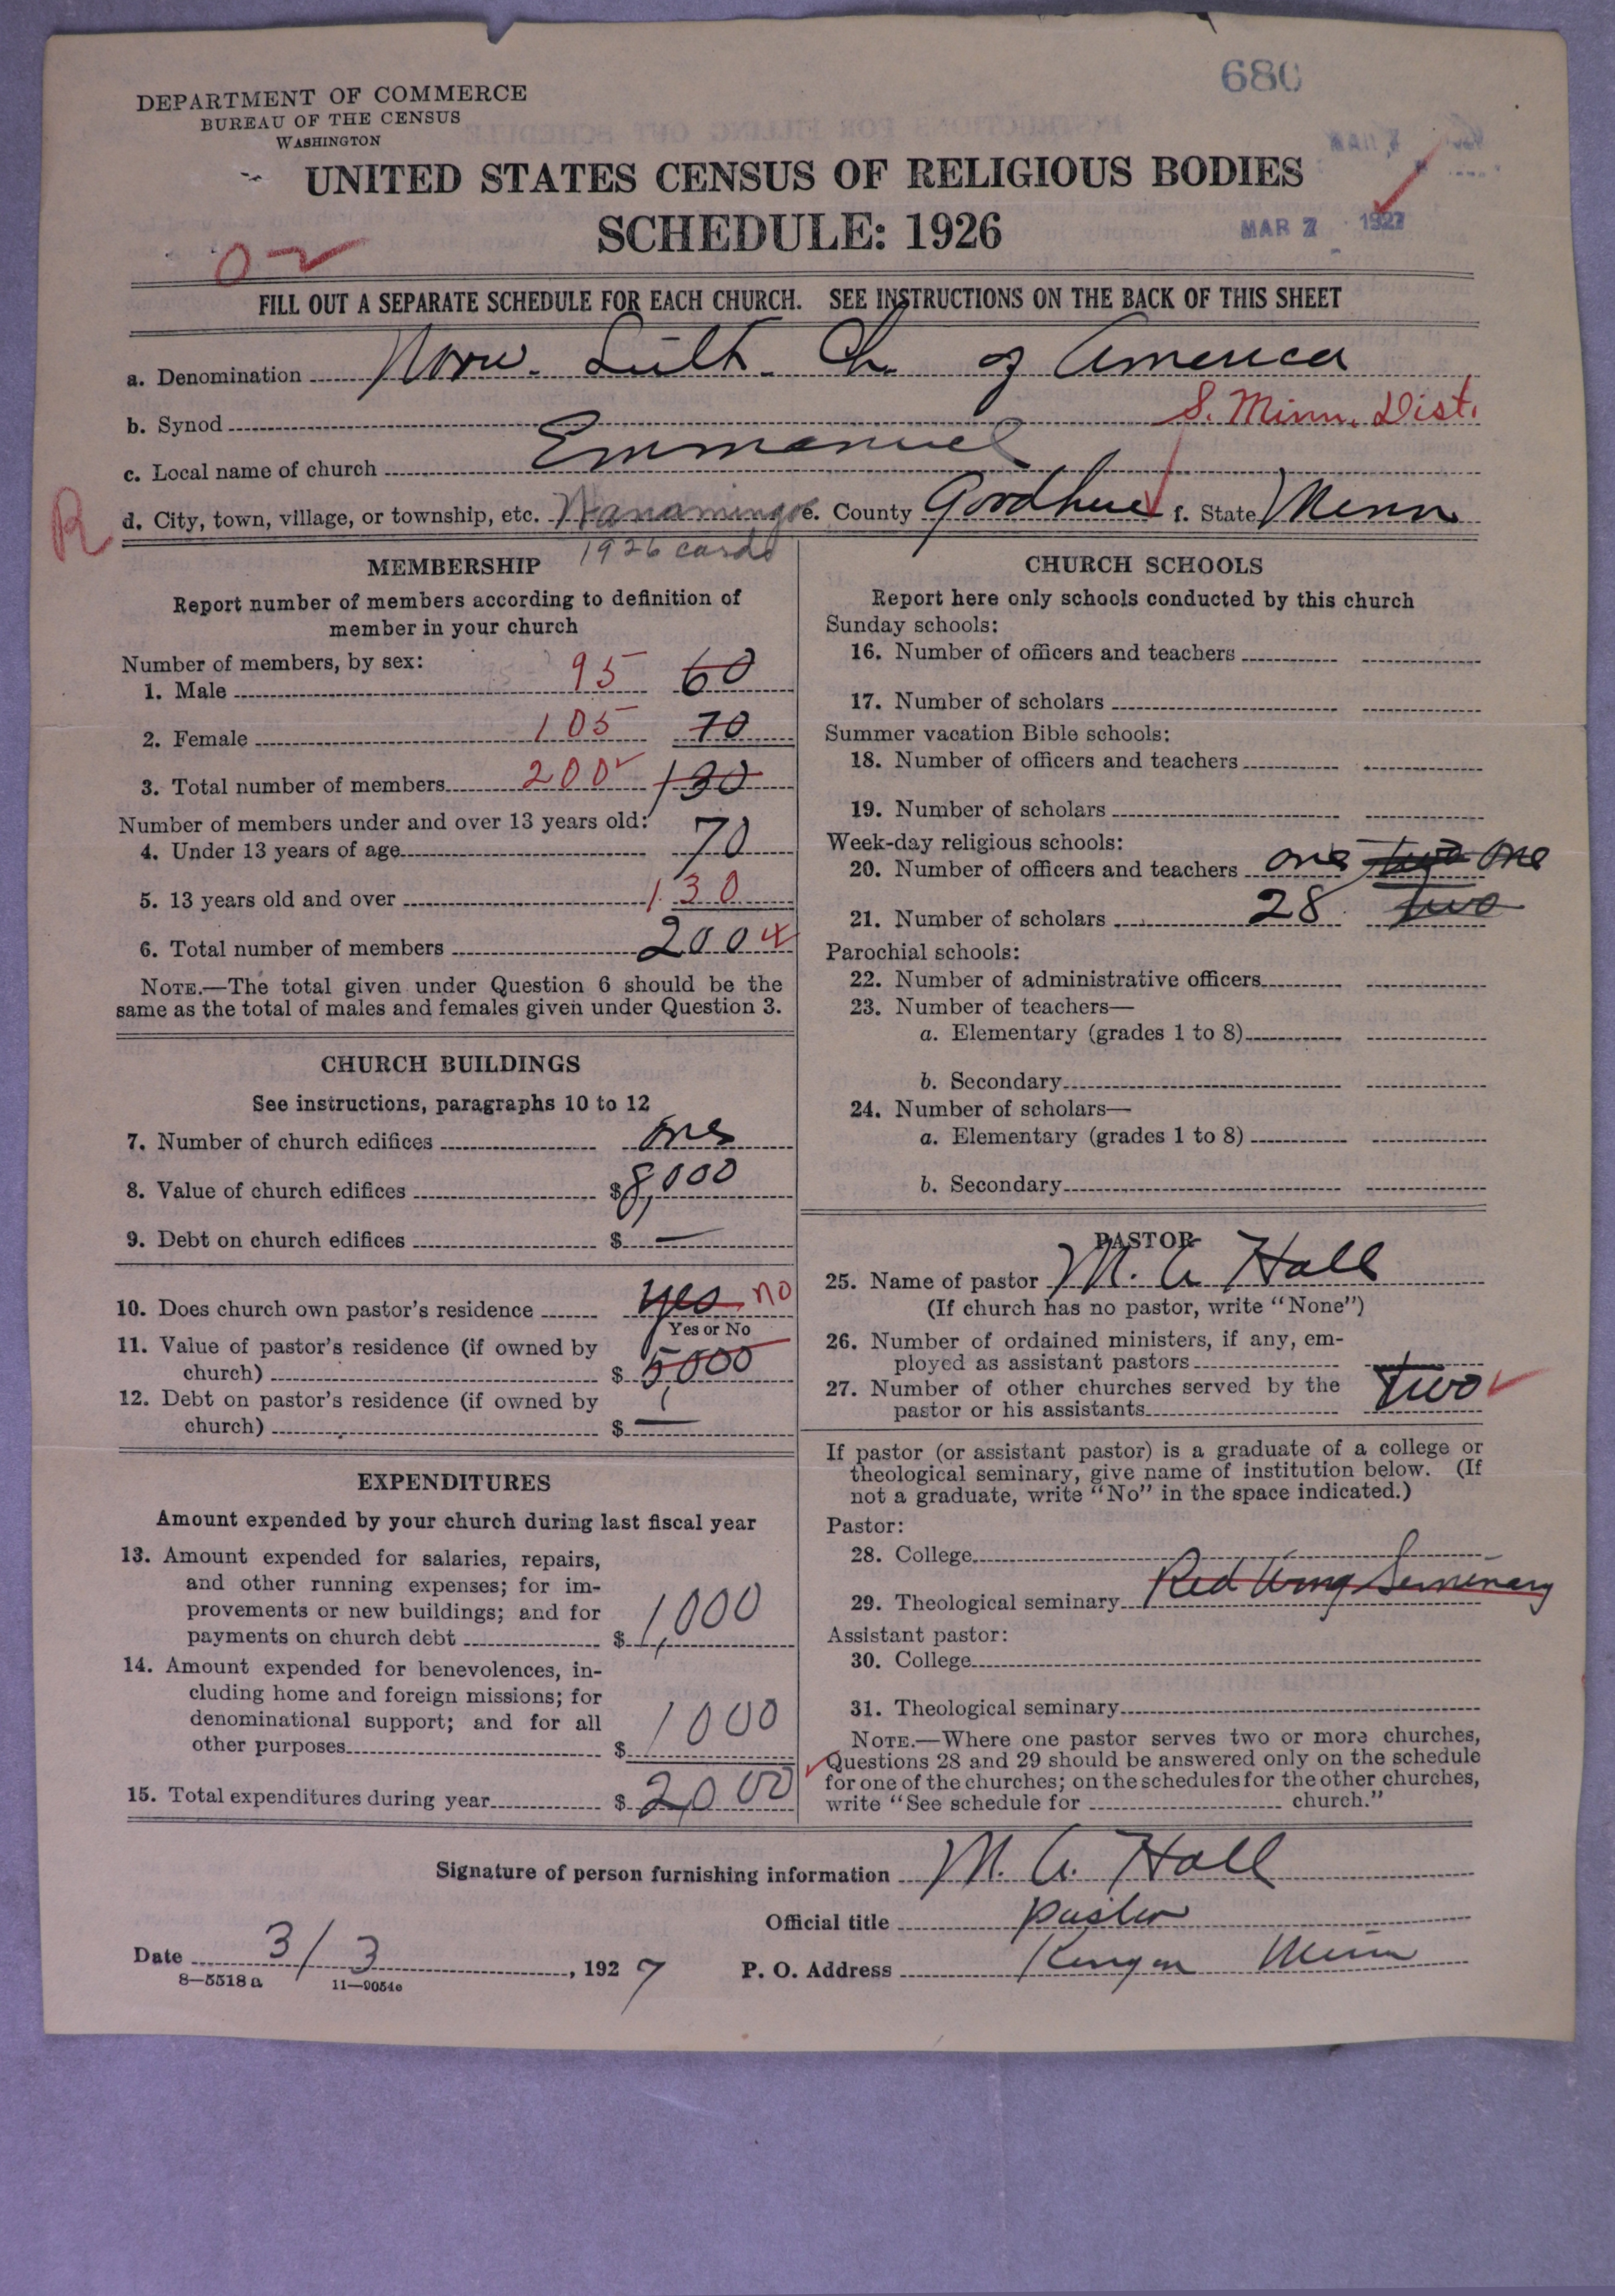 680
DEPARTMENT OF COMMERCE
BUREAU OF THE CENSUS
WASHINGTON
UNITED STATES CENSUS OF RELIGIOUS BODIES
SCHEDULE: 1926
MAR 7 1927
FILL OUT A SEPARATE SCHEDULE FOR EACH CHURCH. SEE INSTRUCTIONS ON THE BACK OF THIS SHEET
a. Denomination Norw. Luth. Ch. of America
b. Synod S. Minn. Dist.
c. Local name of church Emmanuel
R d. City, town, village, or township, etc. Wanamingo e. County Goodhue f. State Minn
1926 cards
MEMBERSHIP
Report number of members according to definition of
member in your church
Number of members, by sex:
1. Male 95 60
2. Female 105 70
3. Total number of members 200 130
Number of members under and over 13 years old:
4. Under 13 years of age 70
5. 13 years old and over 130
6. Total number of members 200
NOTE.—The total given under Question 6 should be the
same as the total of males and females given under Question 3.
CHURCH BUILDINGS
See instructions, paragraphs 10 to 12
7. Number of church edifices one
8. Value of church edifices $8,000
9. Debt on church edifices $ —
10. Does church own pastor's residence yes no
Yes or No
11. Value of pastor's residence (if owned by
church) $ 5,000
12. Debt on pastor's residence (if owned by
church) $ —
EXPENDITURES
Amount expended by your church during last fiscal year
13. Amount expended for salaries, repairs,
and other running expenses; for im-
provements or new buildings; and for
payments on church debt $ 1,000
14. Amount expended for benevolences, in-
cluding home and foreign missions; for
denominational support; and for all
other purposes $ 1000
15. Total expenditures during year $ 2000
CHURCH SCHOOLS
Report here only schools conducted by this church
Sunday schools:
16. Number of officers and teachers
17. Number of scholars
Summer vacation Bible schools:
18. Number of officers and teachers
19. Number of scholars
Week-day religious schools:
20. Number of officers and teachers one two one
21. Number of scholars 28 two
Parochial schools:
22. Number of administrative officers
23. Number of teachers—
a. Elementary (grades 1 to 8)
b. Secondary
24. Number of scholars—
a. Elementary (grades 1 to 8)
b. Secondary
PASTOR
25. Name of pastor M. A Hall
(If church has no pastor, write "None")
26. Number of ordained ministers, if any, em-
ployed as assistant pastors
27. Number of other churches served by the
pastor or his assistants two
If pastor (or assistant pastor) is a graduate of a college or
theological seminary, give name of institution below. (If
not a graduate, write "No" in the space indicated.)
Pastor:
28. College
29. Theological seminary Red Wing Seminary
Assistant pastor:
30. College
31. Theological seminary
NOTE.—Where one pastor serves two or more churches,
Questions 28 and 29 should be answered only on the schedule
for one of the churches; on the schedules for the other churches,
write "See schedule for church."
Signature of person furnishing information M. A. Hall
Official title pastor
Date 3/3, 1927 P. O. Address Kenyon Minn
8—5518a 11—9054c